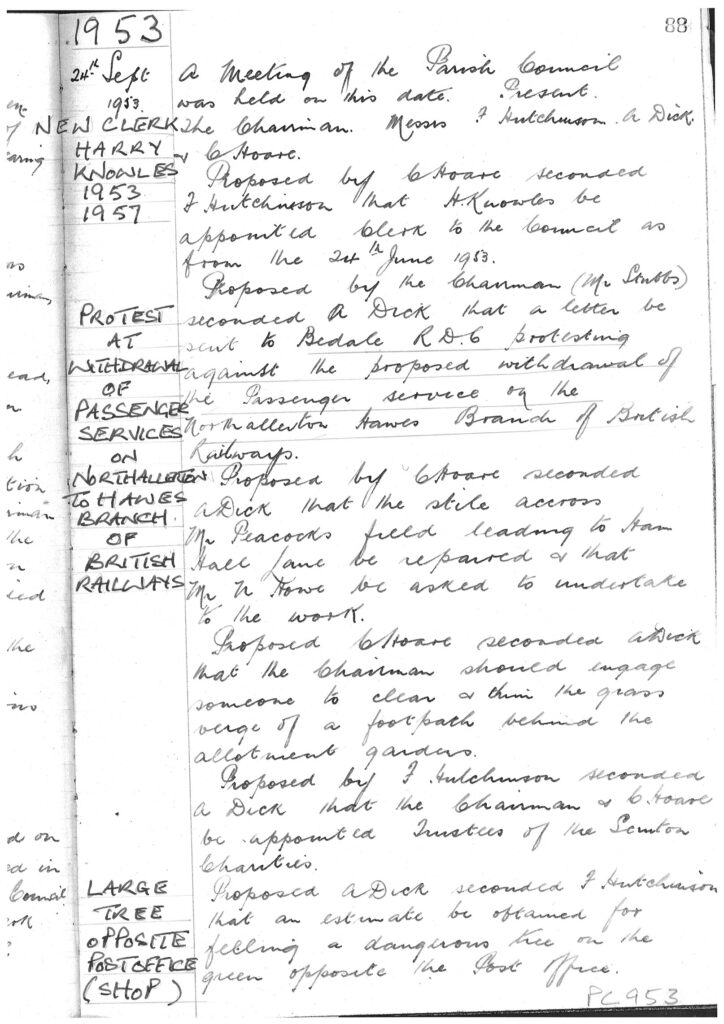 1953
88
24th Sept
1953.
A Meeting of the Parish Council
was held on this date. Present.
NEW CLERK
HARRY
KNOWLES
1953
1957
The Chairman. Messrs F Hutchinson. A Dick.
& C Hoare.
Proposed by C Hoare seconded
F Hutchinson that H. Knowles be
appointed Clerk to the Council as
from the 24th June 1953.
Proposed by the Chairman (Mr Stubbs)
PROTEST
AT
WITHDRAWAL
OF
PASSENGER
SERVICES
ON
NORTHALLERTON
TO HAWES
BRANCH
OF
BRITISH
RAILWAYS
seconded A Dick that a letter be
sent to Bedale R.D.C protesting
against the proposed withdrawal of
the Passenger service on the
Northallerton Hawes Branch of British
Railways.
Proposed by C Hoare seconded
A Dick that the stile accross
Mr Peacocks field leading to Ham
Hall Lane be repaired & that
Mr N Howe be asked to undertake
to the work.
Proposed C Hoare seconded A Dick
that the Chairman should engage
someone to clear & thin the grass
verge of a footpath behind the
allotment gardens.
Proposed by F Hutchinson seconded
A Dick that the Chairman & C. Hoare
be appointed Trustees of the Scruton
Charities.
LARGE
TREE
OPPOSITE
POST OFFICE
(SHOP)
Proposed A Dick seconded F Hutchinson
that an estimate be obtained for
felling a dangerous tree on the
green opposite the Post Office.
PC953